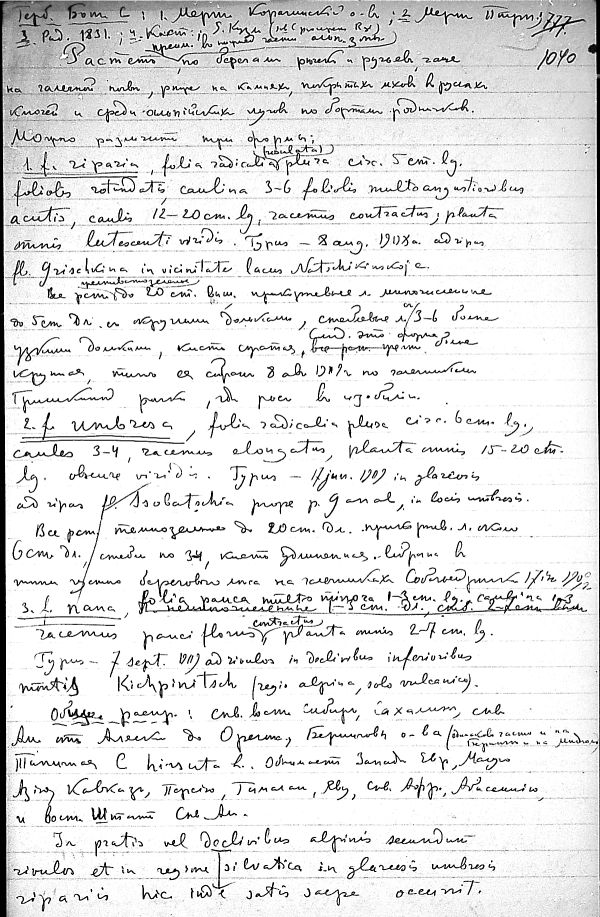 Герб. Бот. С ; 1. Мерт. Корагинский о-в ; 2 Мерт. 777
3. Рад. 1831. ; 4. Каст ; 5. Кузн 1040
Растёт по берегам речек и ручьев, чаще
на галечной почве, реже на камнях, покрытых мхов в руслах
ключей и среди альпийских лугов по бортам родничков.
Можно различить три формы:
1. f. riparia, folia radicalia plura circ. 5 cm. lg.
foliolis rotundatis, caulina 3-6 foliolis multo angustioribus
acutis, caulis 12-20 cm. lg, racemus contractus; planta
omnis lutescenti viridis. Typus - 8 aug. 1908 a. ad ripas
fl. Grischkina in vicinitate lacus Natschikinskoje.
Все раст. до 20 cm. выш. прикорневые л. многочисленные
до 5 cm дл. с округлыми дольками, стеблевые л. 3-6 более
узкими дольками, кисть сжатая, это форма более
крупная, тип ее собран 8 авг 1909 г по галечникам
Гришкиной речки, где росл в изобилии.
2. f. umbrosa, folia radicalia plura circ. 6 cm. lg.,
caules 3-4, racemus elongatus, planta omnis 15-20 cm.
lg. obscure viridis. Typus - 17 jun. 1909 in glareosis
ad ripas fl. Tsobatschia prope p. Ganal, in locis umbrosis.
Все раст темнозеленое до 20 cm. дл. прикорнев. л. около
6 cm. дл., стебли по 3-4, кисть удлиненная. Собрана в
тени густого берегового леса на галечниках Собачьей речки 17
3. f. nana, folia pauca multo minora 1-3 cm. lg. caulina 1-3
racemus pauci florus, contractus planta omnis 2-7 cm. lg.
Typus - 7 sept. 1909 ad rivulos in declivibus inferioribus
montis Kichpinitsch (regio alpina, solo vulcanico).
Общее распр.: сев. вост Сибирь, Сахалин, сев
Ам от Аляски до Орегона, Беринговы о-ва
Типичная C. hirsuta L. обнимает Запади Евр, Малую
Азию Кавказ, Персию, Гималаи, Яву, Сев. Афр., Абиссинию,
и вост. Штаты Сев Ам.
In pratis vel declivibus alpinis secundum
rivulos et in regione silvatica in glareosis umbrosis
ripariis hic inde satis saepe occurrit.